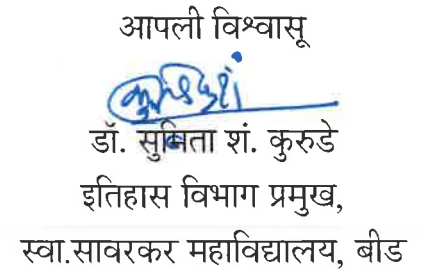 आपली विश्वासू
डॉ. सुनिता शं. कुरुडे
इतिहास विभाग प्रमुख,
स्वा.सावरकर महाविद्यालय, बीड